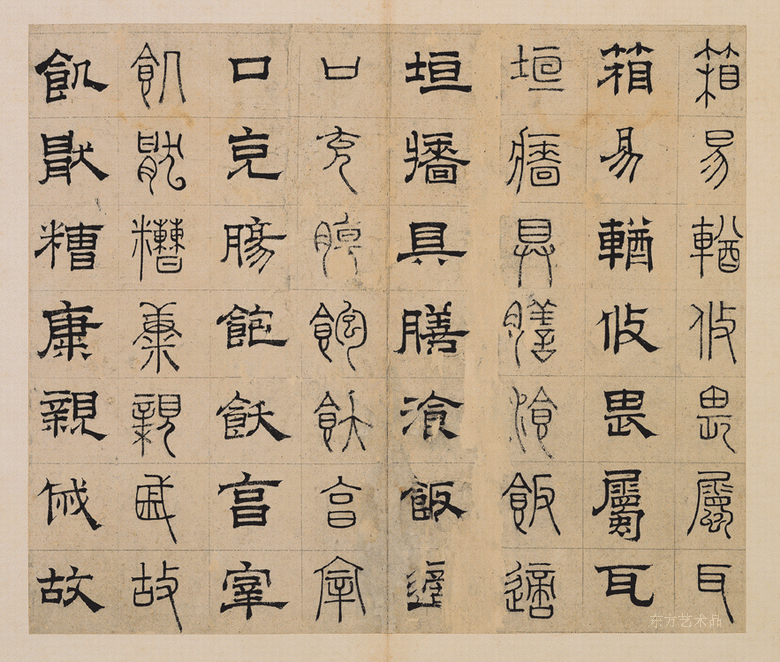 箱易輶攸畏屬耳
箱易輶攸畏屬耳
垣牆具膳湌飯適
垣牆具膳湌飯適
口充腸飽飫亯宰
口充腸飽飫亯宰
飢猒糟康親戚故
飢猒糟康親戚故
东方艺术品